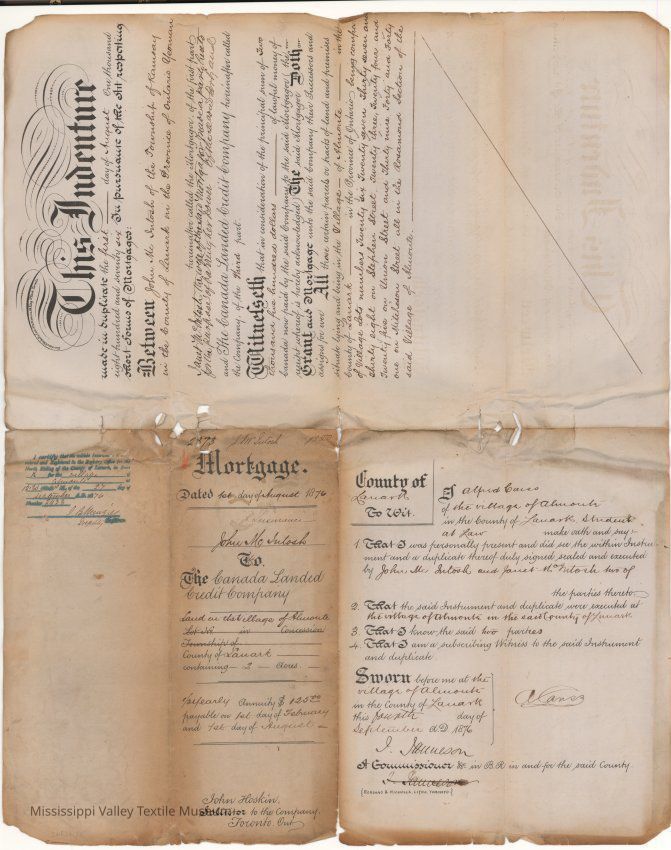 This Indenture
made in duplicate the first day of August one thousand
eight hundred and seventy six In pursuance of the Act respecting
Short Forms of Mortgages:
Between John Mc Intosh of the Township of Ramsay
in the County of Lanark in the Province of Ontario Yeoman
hereinafter called the Mortgagor of the first part
and The Canada Landed Credit Company hereinafter called
the Company of the third part.
Witnesseth that in consideration of the principal sum of Two
thousand five hundred dollars of lawful money of
Canada now paid by the said Company to the said Mortgagor the
receipt whereof is hereby acknowledged The said Mortgagor Doth
Grant and Mortgage unto the said Company their Successors and
assigns for ever All those certain parcels or parts of land and premises
situate lying and being in the Village of Almonte in the
County of Lanark in the Province of Ontario being composed
of Village lots numbers Twenty Six Twenty Seven Thirty Seven and
thirty eight on Stephen Street Twenty three, Twenty four and
Twenty five on Union Street and Thirty nine Forty and Forty
one on Mitcheson Street all in the Rosamond Section of the
said Village of Almonte.
I certify that the within
Almonte
2373 J McIntosh
Mortgage.
Dated 1st day of August 1876
John Mc Intosh
To.
The Canada Landed
Credit Company
Land in the village of Almonte
Lot No. in Concession
Township of
County of Lanark
containing 2 Acres
Yearly Annuity $ 125.00
payable on 1st day of February
and 1st day of August
John Hoskin,
Solicitor to the Company.
Toronto. Ont
County of
Lanark
To Wit.
I Alfred
of the village of Almonte
in the County of Lanark Student
at Law make oath and say:-
1. That I was personally present and did see the within Instru-
ment and a duplicate thereof duly signed sealed and executed
by John Mc Intosh and Janet McIntosh two of
the parties thereto.
2. That the said Instrument and duplicate were executed at
the village of Almonte in the said County of Lanark
3. That I know the said two parties
4. That I am a subscribing Witness to the said Instrument
and duplicate.
Sworn before me at the
village of Almonte
in the County of Lanark
this fourth day of
September A.D 1876
J. Jamieson
A Commissioner &c in B.R in and for the said County.
J. Jamieson
Mississippi Valley Textile Museum